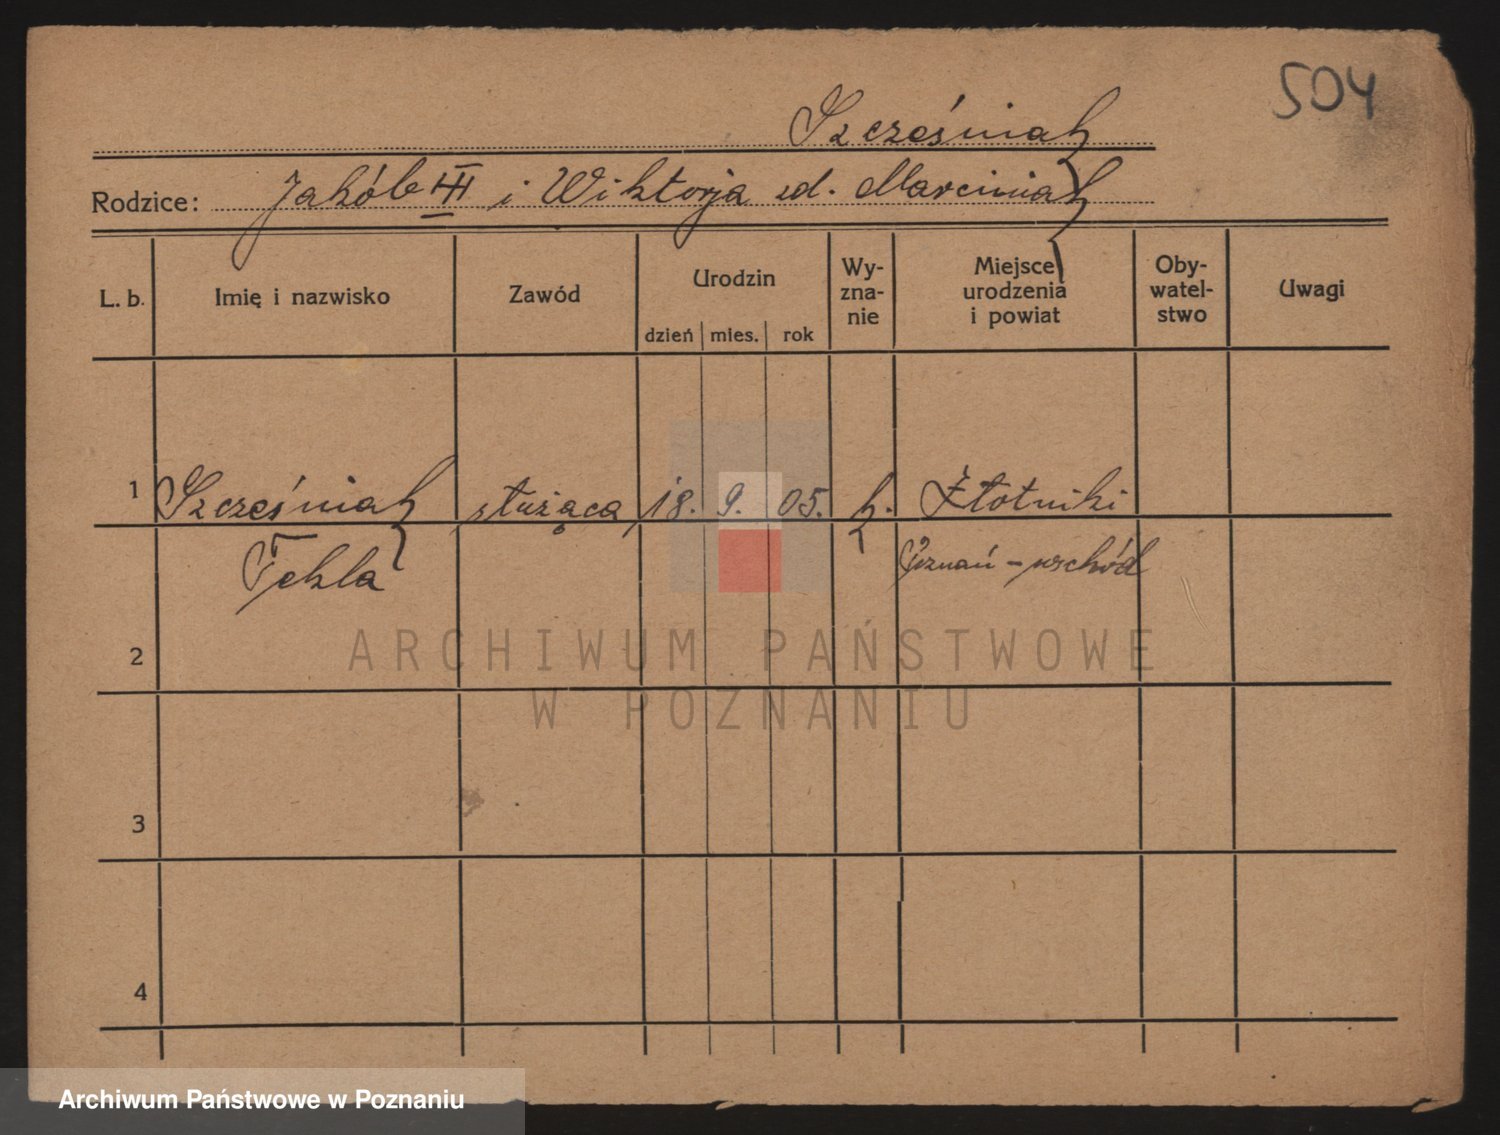 504
Szcześniak
Rodzice: Jakób III i Wiktorja zd. Marciniak
L. b. Imię i nazwisko Zawód Urodzin dzień mies. rok Wy-zna-nie Miejsce urodzenia i powiat Oby-watel-stwo Uwagi
1 Szcześniak służąca 18. 9. 05. k. Złotniki
Tekla Poznań - wschód
2
ARCHIWUM PAŃSTWOWE
W POZNANIU
3
4
Archiwum Państwowe w Poznaniu